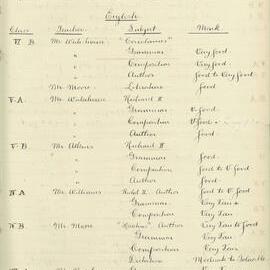 English
Class Teacher Subject Mark
VI B. Mr. Waterhouse "Coriolanus"
" Grammar Very Good
" Composition Very Good
" Author Good to Very Good
Mr. Moore Literature Good
V A. Mr. Waterhouse Richard II
" Grammar V. Good
" Composition V. Good
" Author Good
V B Mr. Atkins Richard II
" Grammar Good
" Composition Good to V. Good
" Author Good
IV A Mr. Williams Richd II Author Good to V. Good
Grammar Very Fair
Composition Very Fair
IV B. Mr. Moore Author Very Good
Grammar Very Fair
Composition Very Fair
Dictation